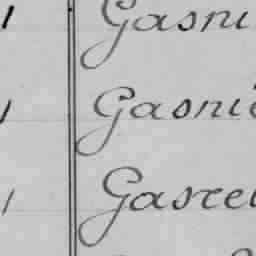 1 Gasni
1 Gasnie
1 Gascel